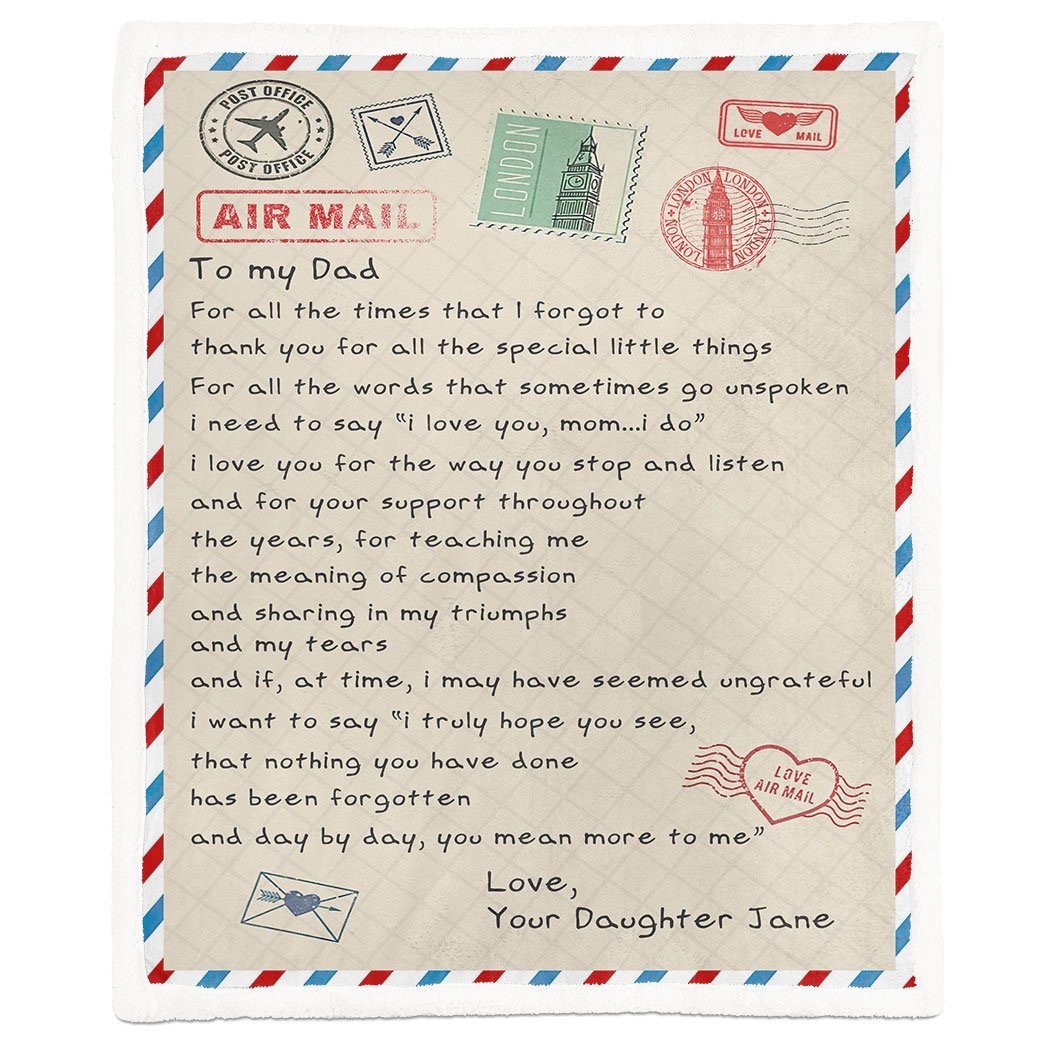 POST OFFICE
POST OFFICE
LONDON
LOVE MAIL
LONDON LONDON
LONDON LONDON
AIR MAIL
To my Dad
For all the times that I forgot to
thank you for all the special little things
For all the words that sometimes go unspoken
i need to say "i love you, mom...i do"
i love you for the way you stop and listen
and for your support throughout
the years, for teaching me
the meaning of compassion
and sharing in my triumphs
and my tears
and if, at time, i may have seemed ungrateful
i want to say "i truly hope you see,
that nothing you have done
has been forgotten
and day by day, you mean more to me"
LOVE
AIR MAIL
Love,
Your Daughter Jane